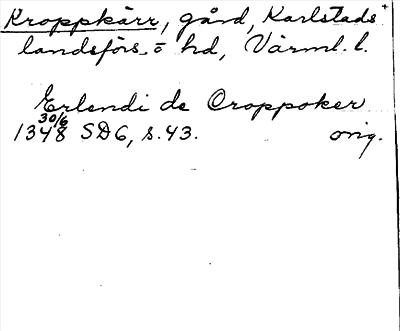 Kroppkärr, gård, Karlstads +
landsförs. o hd, Värml. l.
Erlendi de Croppoker
30/6
1348 SD6, s. 43. orig.